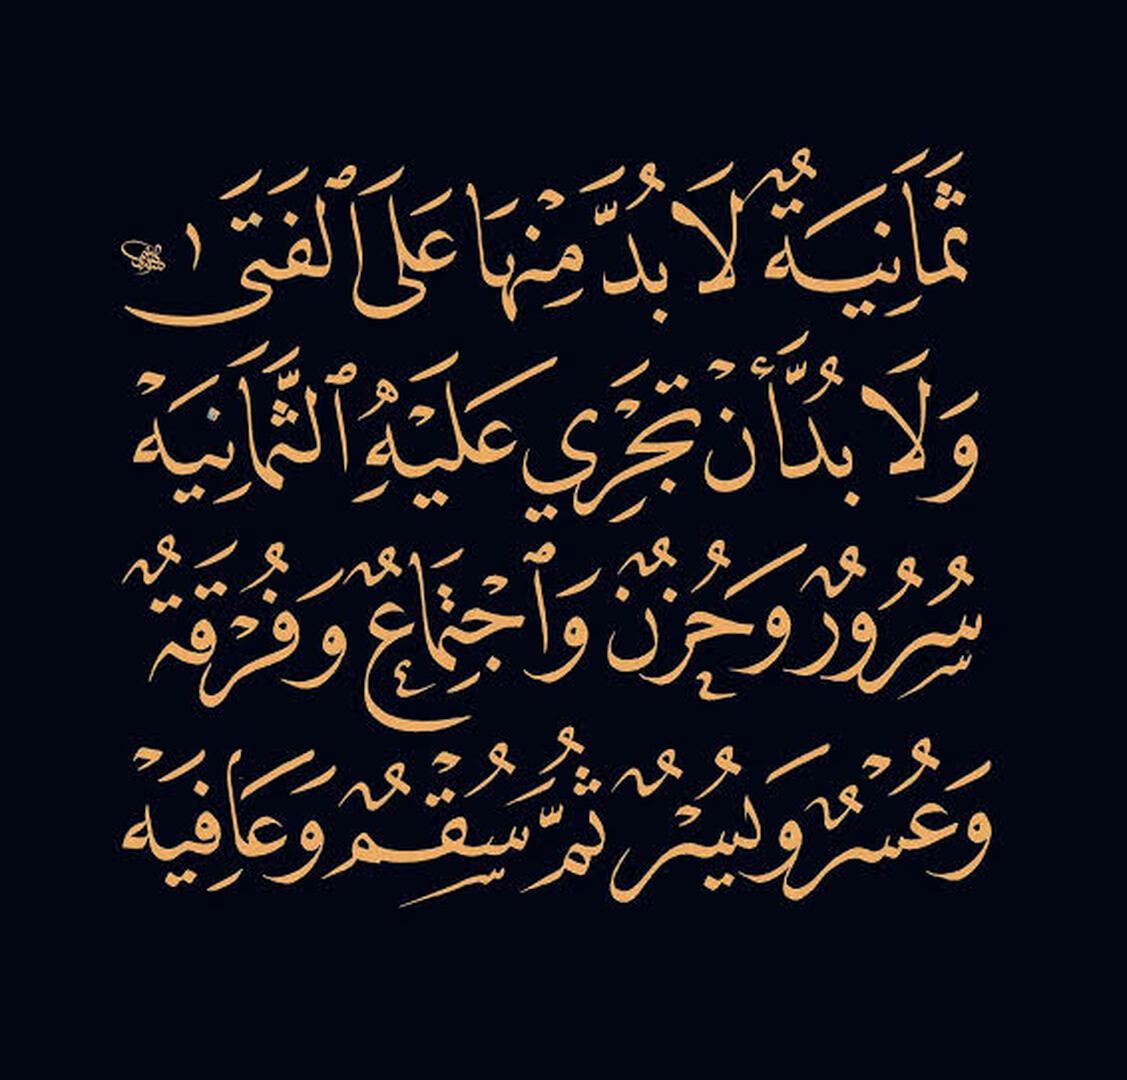 ثَمَانِيَةٌ لَا بُدَّ مِنْهَا عَلَى ٱلْفَتَى
وَلَا بُدَّ أَنْ تَجْرِي عَلَيْهِ ٱلثَّمَانِيَهْ
سُرُورٌ وَحُزْنٌ وَٱجْتِمَاعٌ وَفُرْقَةٌ
وَعُسْرٌ وَيُسْرٌ ثُمَّ سُقْمٌ وَعَافِيَهْ